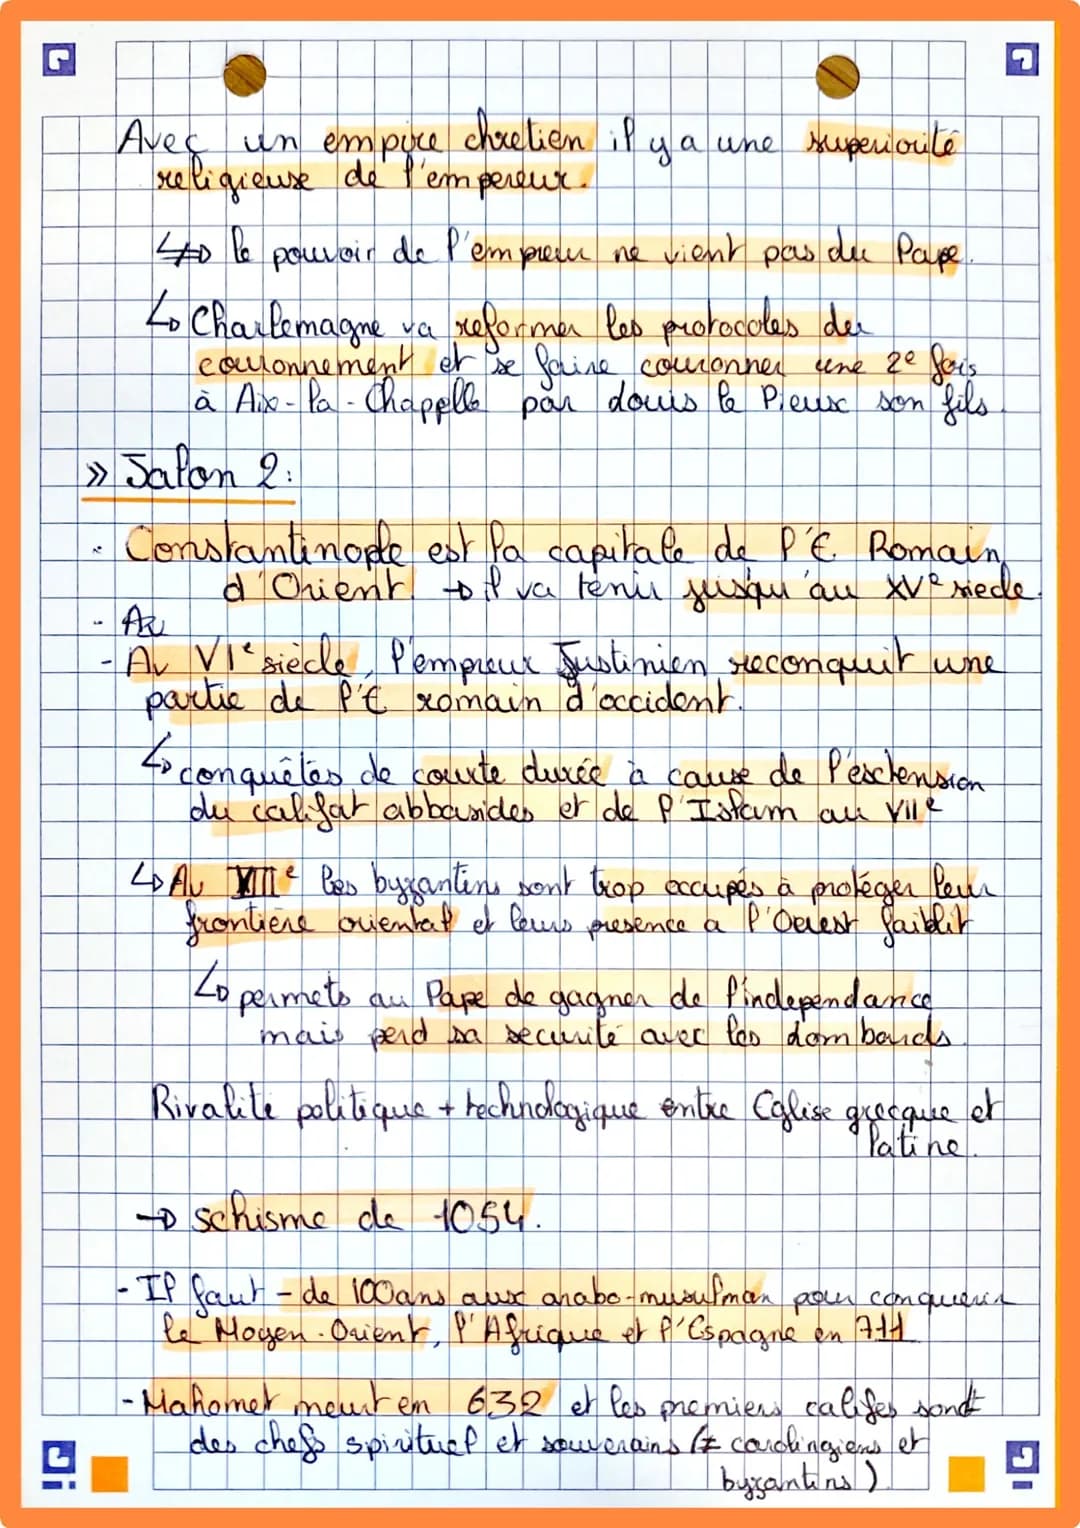 Avec un empire chretien il y a une superiorité
religieuse de l'empereur.
↳ le pouvoir de l'empreur ne vient pas du Pape.
↳ Charlemagne va reformer les protocoles du
couronnement et se faire couronner une 2e fois
à Aix-la-Chappelle par Louis le Pieux son fils.
» Salon 2:
- Constantinople est la capitale de l'E Romain
d'Orient. → il va tenir jusqu'au XVe siecle.
- Au
- Au VIe siècle, l'empreur Justinien reconquit une
partie de l'E romain d'occident.
↳ conquêtes de courte durée à cause de l'exctension
du califat abbasides et de l'Islam au VIIe
↳ Au VIIIe les byzantins sont trop occupés à protéger leur
frontière oriental et leurs presence a l'Ouest faiblit
↳ permets au Pape de gagner de l'independance
mais perd sa securité avec les Lombards.
Rivalité politique + technologique entre Eglise grecque et
latine.
→ schisme de 1054.
- Il faut - de 100ans aux arabo-musulman pour conquerir
le Moyen-Orient, l'Afrique et l'Espagne en 711
- Mahomet meurt en 632 et les premiers califes sont
des chefs spirituel et souverains (≠ carolingiens et
byzantins)